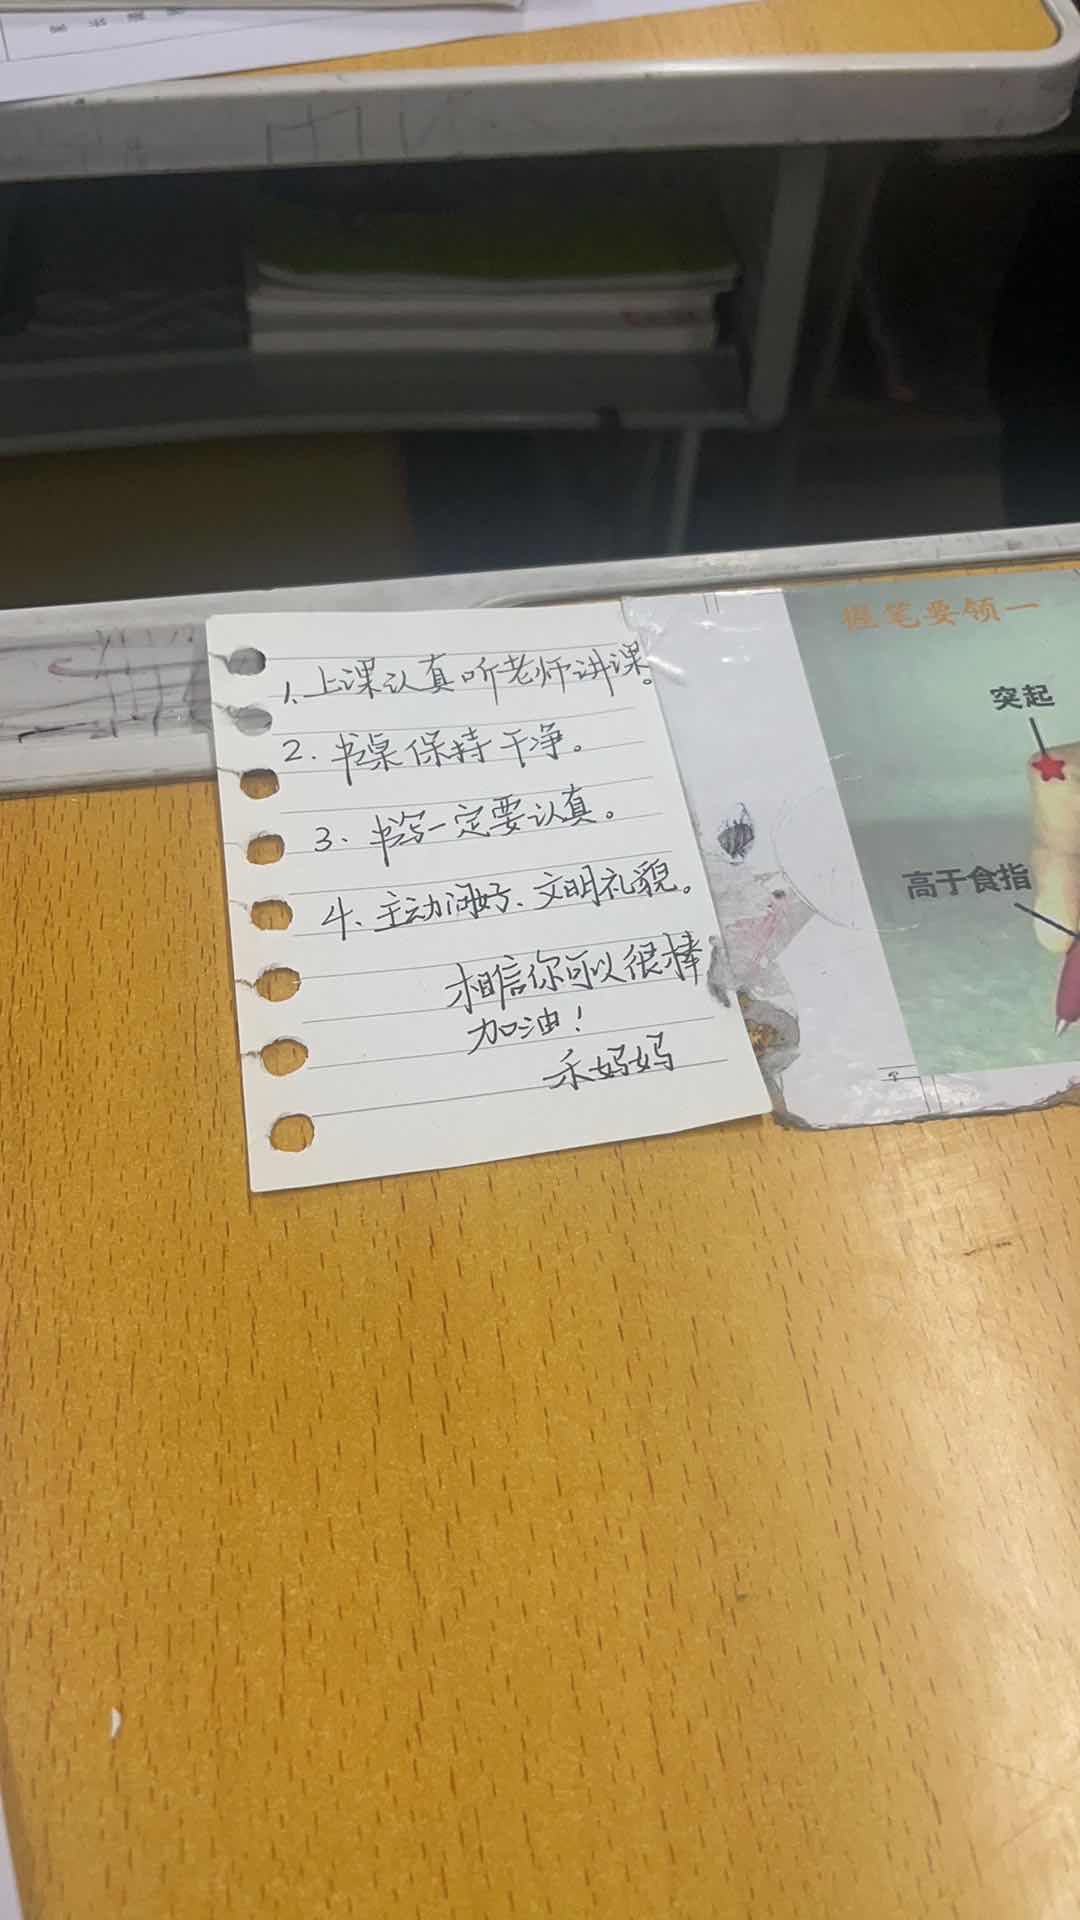 1、上课认真听老师讲课。
2. 书桌保持干净。
3、书写一定要认真。
4、主动问好、文明礼貌。
相信你可以很棒
加油！
禾妈妈
握笔要领一
突起
高于食指